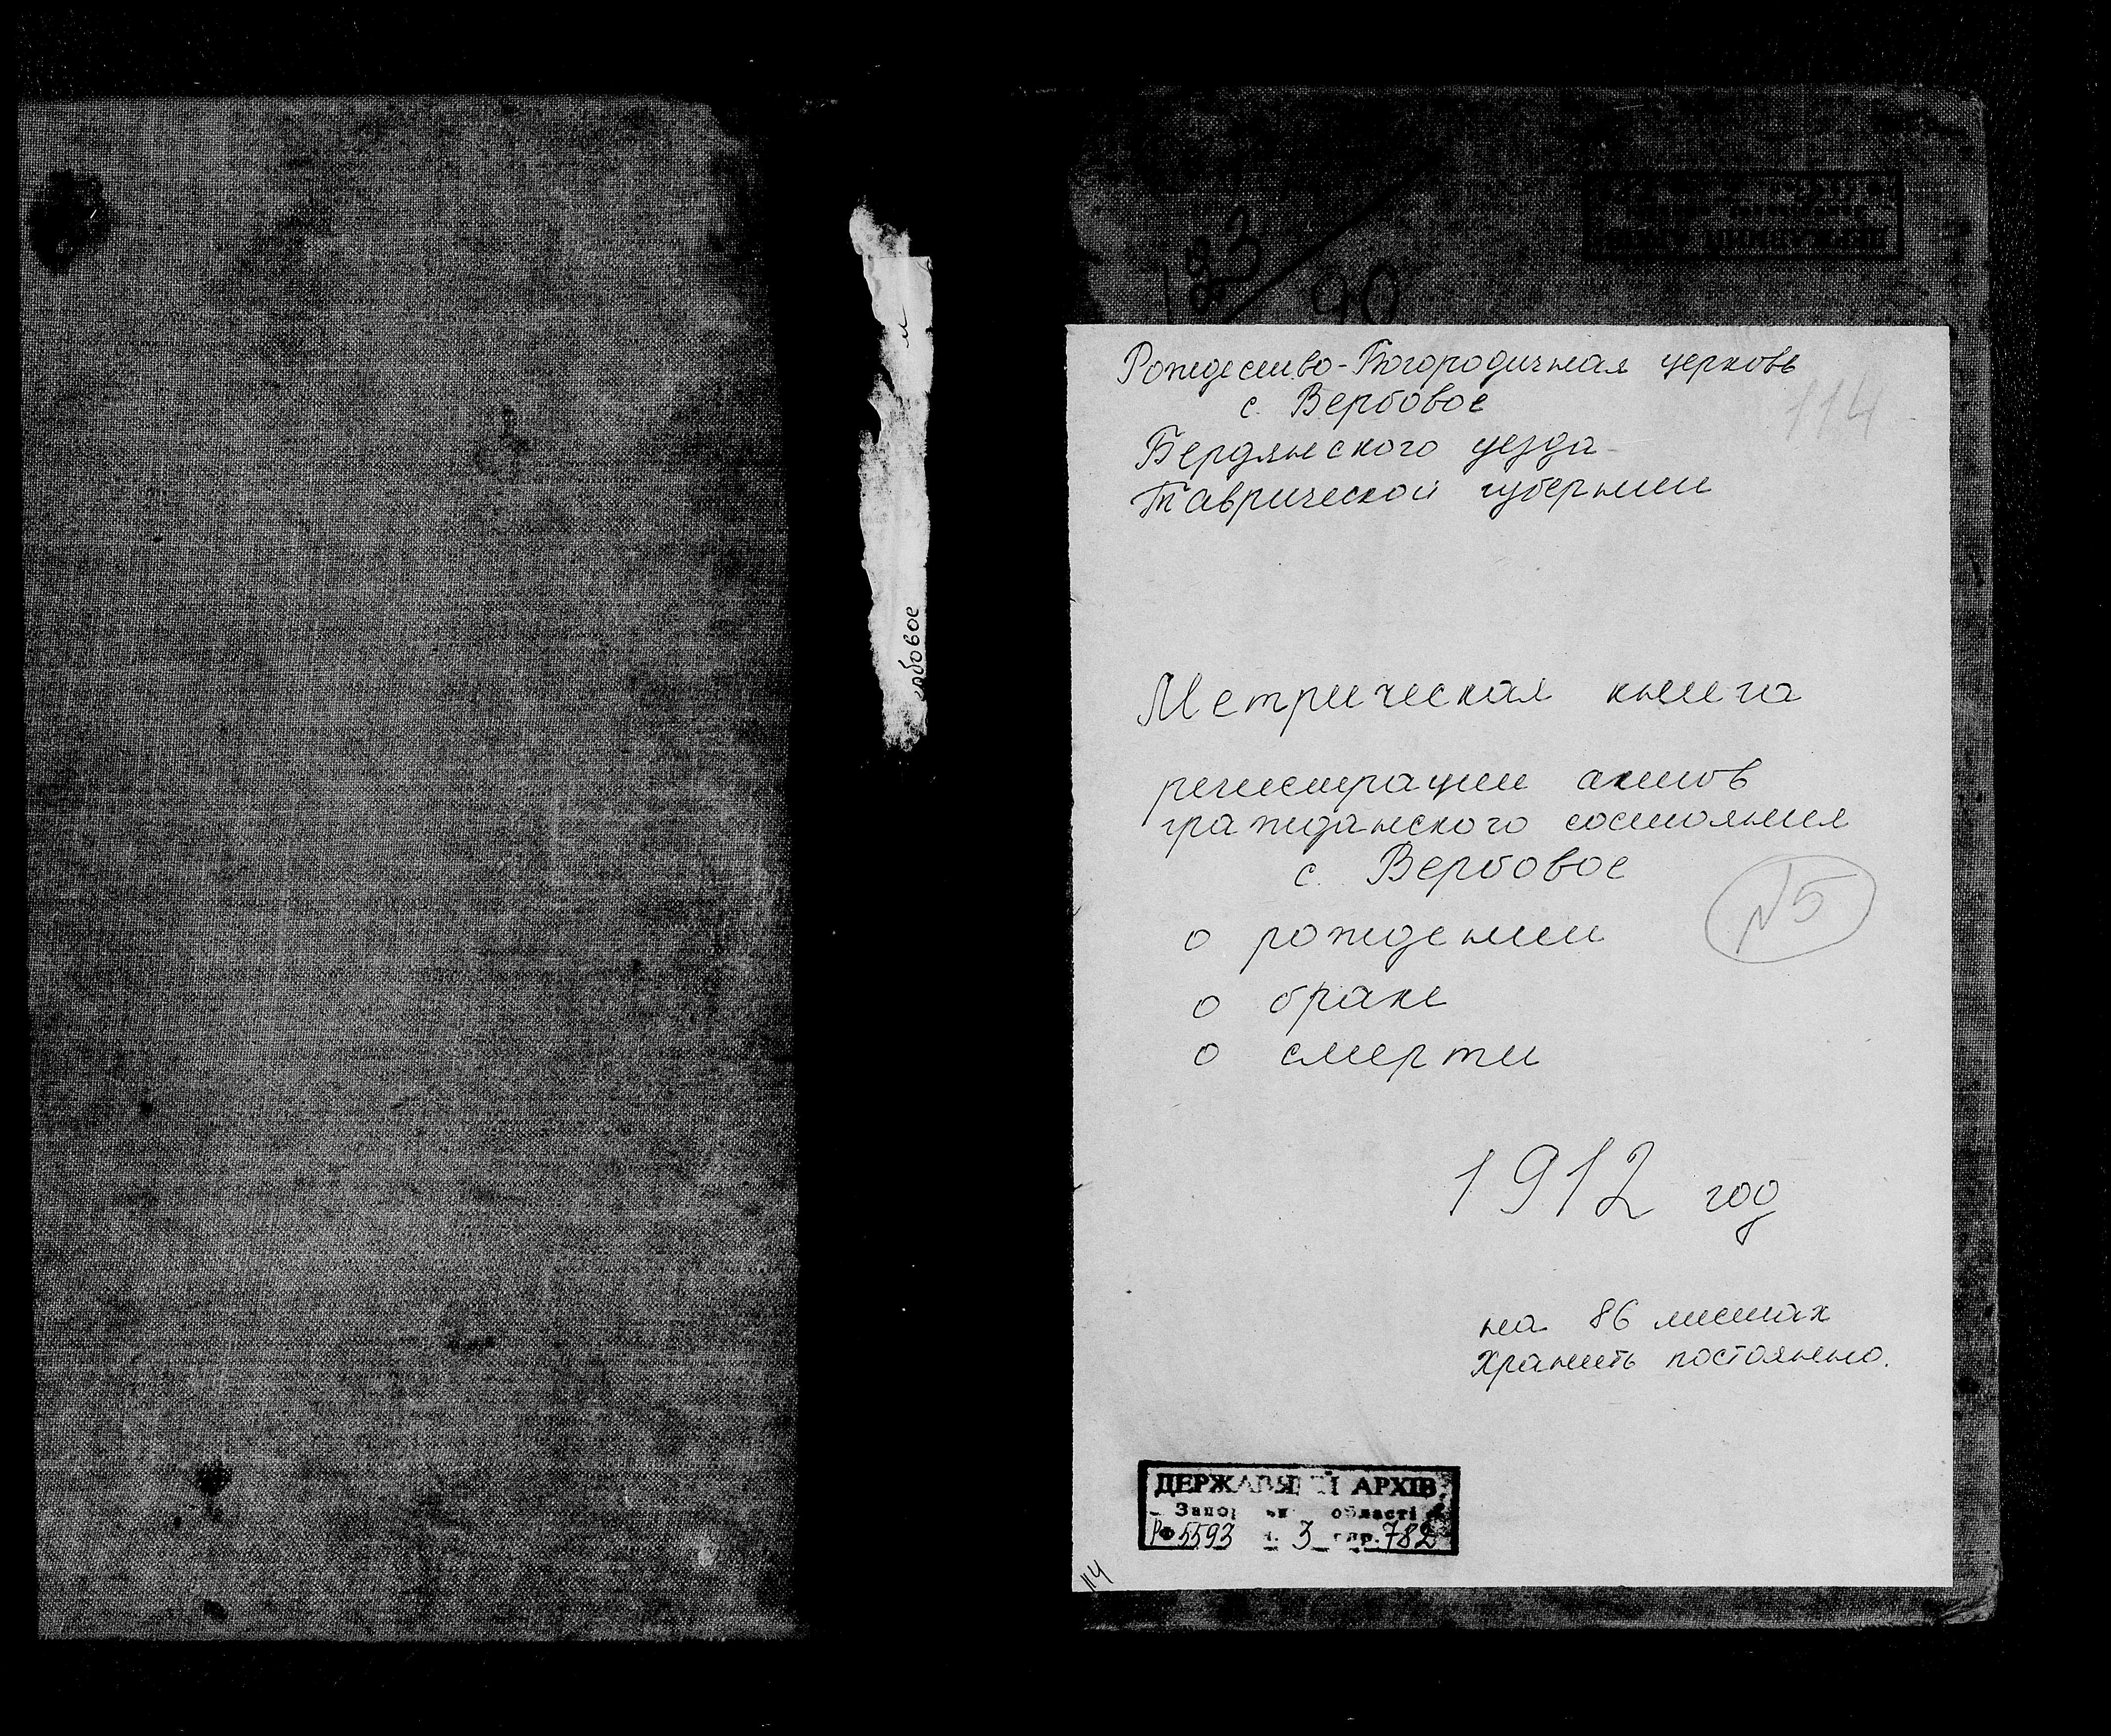 183/90
Рождество-Богородичная церковь
с. Вербовое
114
Бердянского уезда
Таврической губернии
Метрическая книга
регистрации актов
гражданского состояния
с. Вербовое
N5
о рождении
о браке
о смерти
1912 год
на 86 листах
Хранить постоянно.
ДЕРЖАВНИЙ АРХІВ
області
РФ 5593 3 спр. 782
114
рбовое